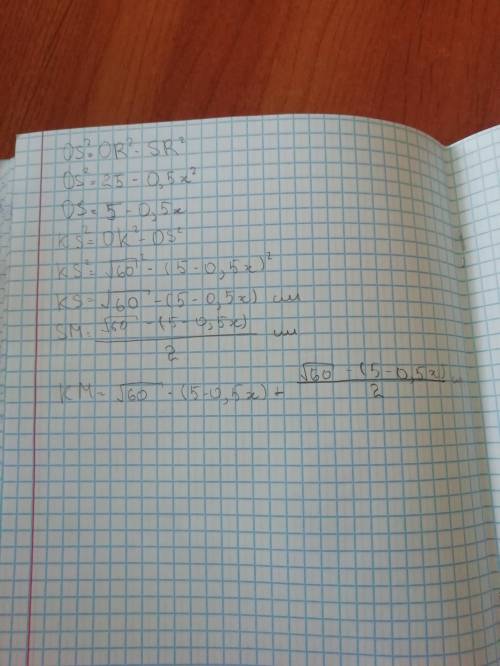 OS²=OR²-SR²
OS²=25-0,5x²
OS=5-0,5x
KS²=OK²-OS²
KS²=√60²-(5-0,5x)²
KS=√60-(5-0,5x) см
SM=(√60-(5-0,5x))/2 см
KM=√60-(5-0,5x)+(√60-(5-0,5x))/2